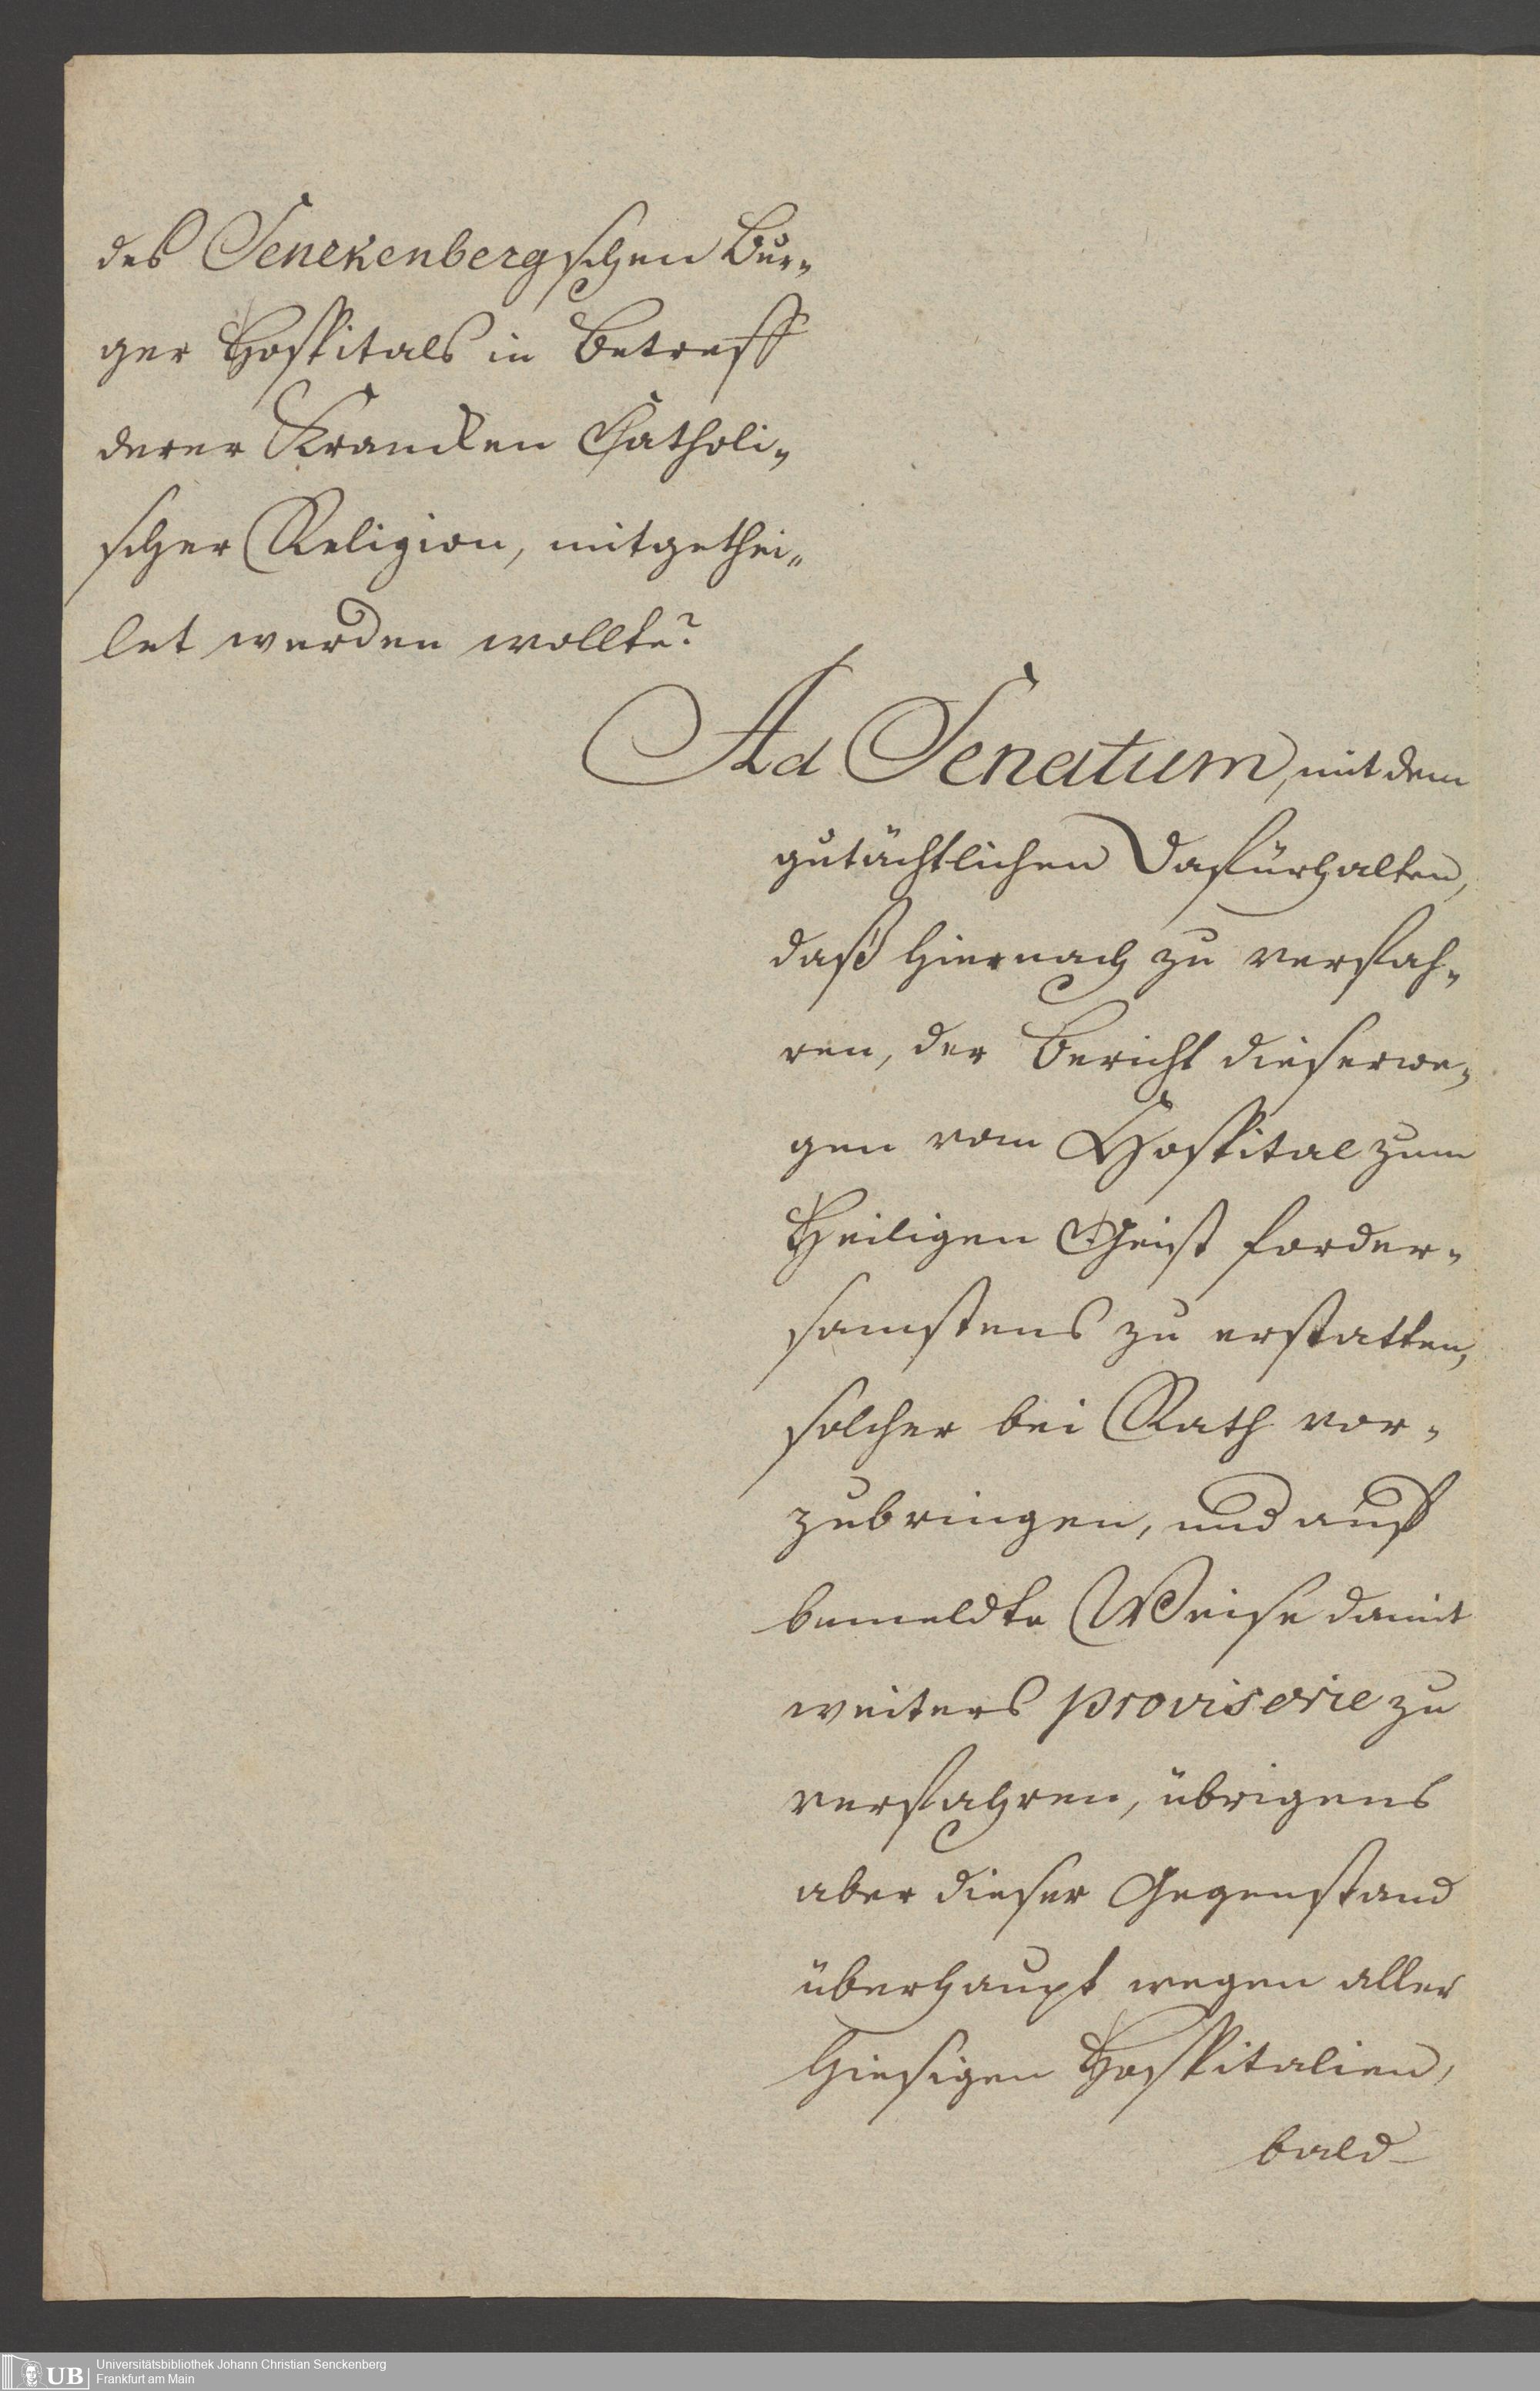 des Senckenbergschen Bur„
ger Hospitals in Betreff
derer Krancken Catholi„
scher Religion, mitgethei„
let werden wollte?
Ad Senatum, mit dem
gutächtlichen Dafürhalten,
daß hiernach zu verfah„
ren, der Bericht dieserwe„
gen vom Hospital zum
Heiligen Geist forder„
samstens zu erstatten,
solcher bei Rath vor„
zubringen, und auf
bemeldte Weise damit
weiters provisorie zu
verfahren, übrigens
aber dieser Gegenstand
überhaupt wegen aller
hiesigen Hospitalien,
bald
UB
Universitätsbibliothek Johann Christian Senckenberg
Frankfurt am Main